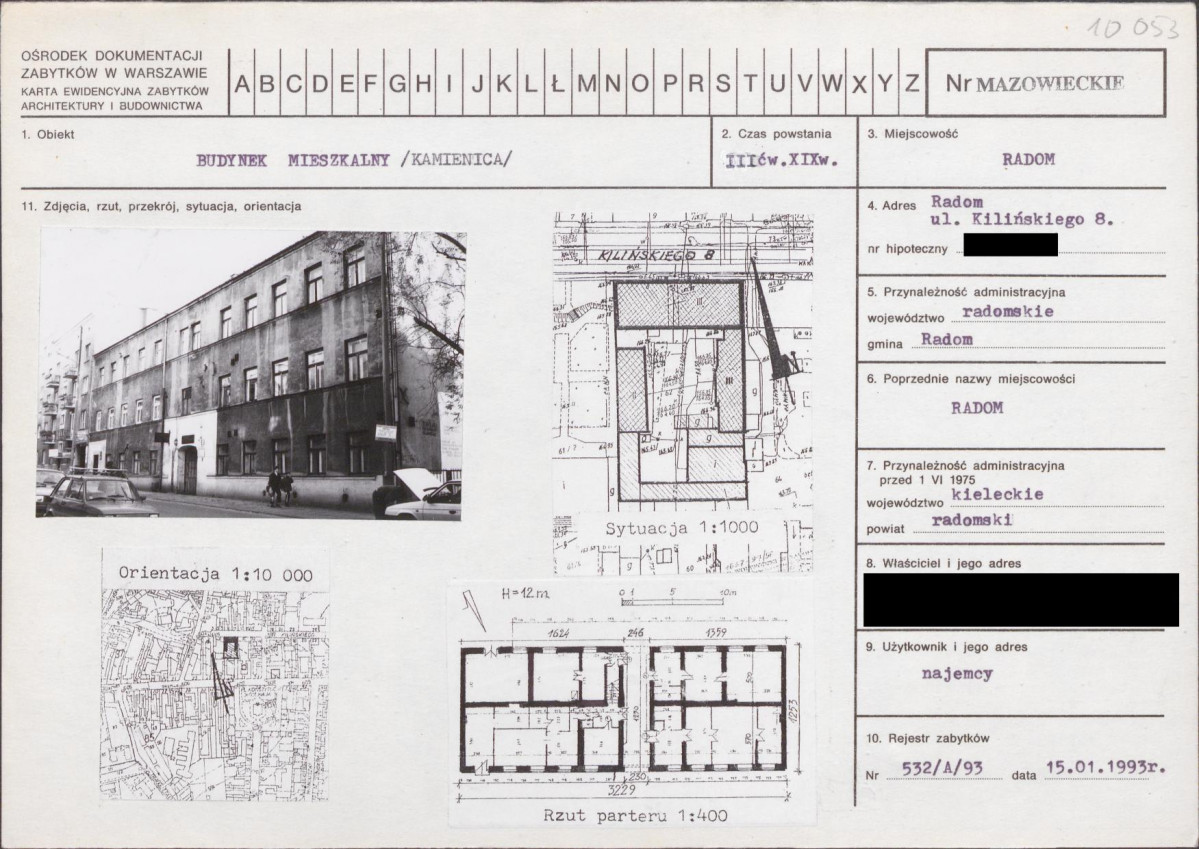 10 053
OŚRODEK DOKUMENTACJI
ZABYTKÓW W WARSZAWIE
KARTA EWIDENCYJNA ZABYTKÓW
ARCHITEKTURY I BUDOWNICTWA
A B C D E F G H I J K L Ł M N O P R S T U V W X Y Z
Nr MAZOWIECKIE
1. Obiekt
BUDYNEK MIESZKALNY /KAMIENICA/
2. Czas powstania
IIIćw.XIXw.
3. Miejscowość
RADOM
11. Zdjęcia, rzut, przekrój, sytuacja, orientacja
4. Adres Radom
ul. Kilińskiego 8.
nr hipoteczny
5. Przynależność administracyjna
województwo radomskie
gmina Radom
6. Poprzednie nazwy miejscowości
RADOM
7. Przynależność administracyjna
przed 1 VI 1975
województwo kieleckie
powiat radomski
8. Właściciel i jego adres
9. Użytkownik i jego adres
najemcy
10. Rejestr zabytków
Nr 532/A/93 data 15.01.1993r.
KILIŃSKIEGO 8
III
III
Sytuacja 1:1000
Orientacja 1:10 000
KILIŃSKIEGO
85
H=12m
0 1 5 10m
1624 246 1359
1253
3229
Rzut parteru 1:400